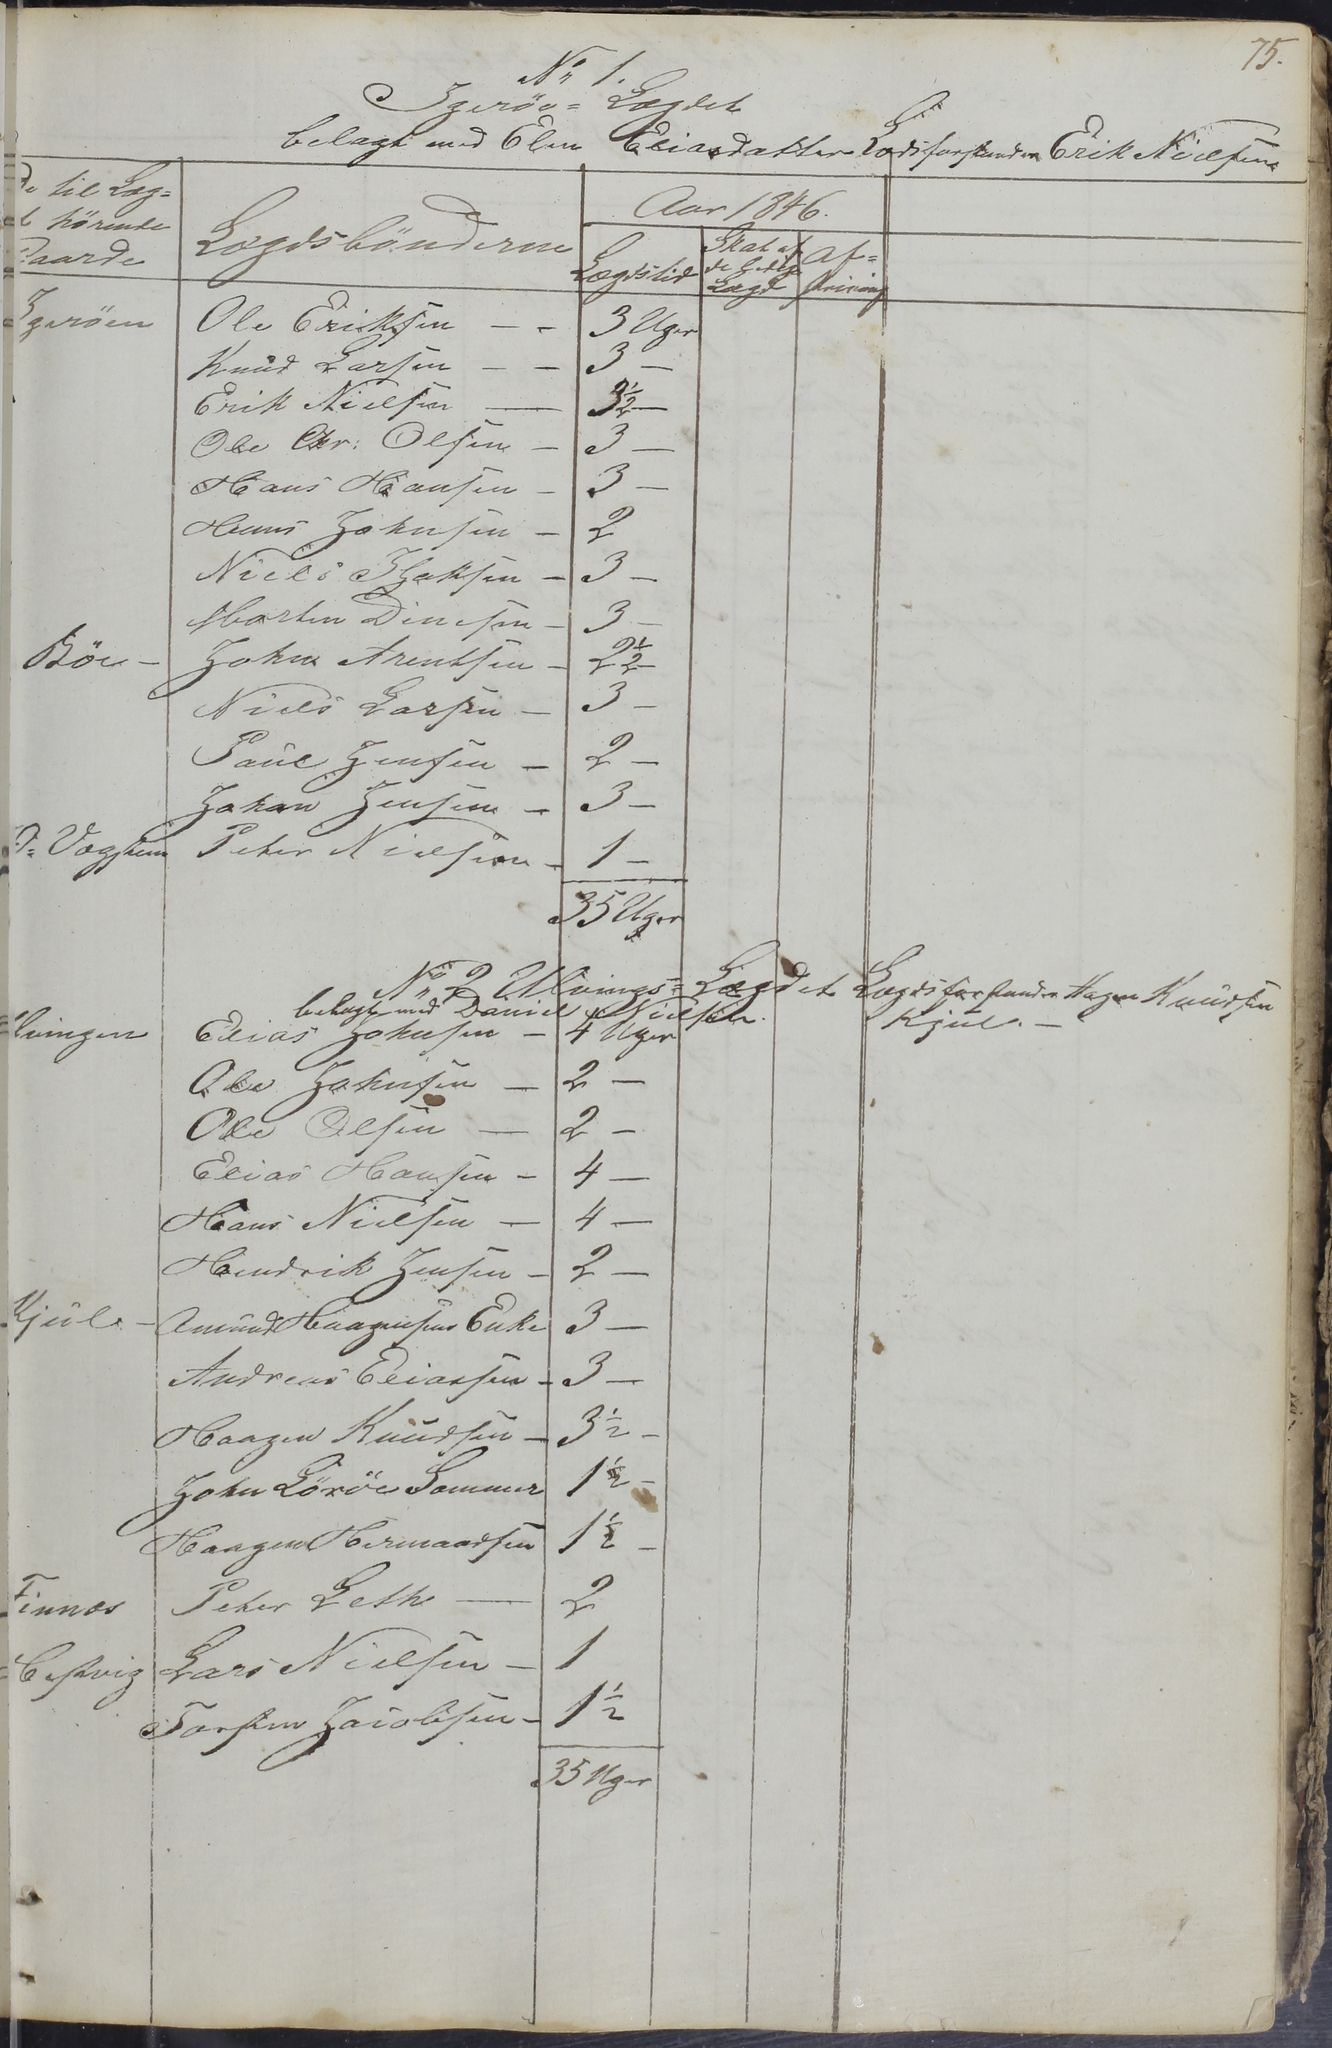 75.
No 1.
Igerøv= Lægdet
belagt med Elen Eliasdatter Lædsforstander Erik Nielsen
De til Læg=
d hörende
Gaarde
Lægdsbönderne
Aar 1846.
Lægdstid
Skat af
de ledige
Lægd
Af=
skrivning
Igeröen Ole Eriksen — - 3 Uger
Knud Larsen - - 3 —
Erik Nielsen — 3½ —
Ole Chr: Olsen — 3 —
Hans Hansen - 3 —
Hans Johnsen - 2
Niels Isaksen - 3 —
Morten Dinesen - 3 —
Böe — John Arentsen - 2½ —
Niels Larsen — 3 —
Paul Jensen — 2 —
Johan Jensen — 3 —
Vægstein Peter Nielsen - 1 —
35 Uger
No 2 Ulvings= Lægdet Lægdsforstander Hagen Knudsen
belagt med Daniel Nielsen. Kjul. —
lvingen Elias Johnsen — 4 Uger
Ole Johnsen — 2 —
Ole Olsen — 2 —
Elias Hansen - 4 —
Hans Nielsen — 4 —
Hendrik Jensen - 2 —
Kjul — Amund Haagensens Enke 3 —
Andreas Eliassen - 3 —
Haagen Knudsen - 3½ -
John Söröe Sommer 1½ -
Haagen Hermandsen 1½ -
Finnæs Peter Leth — 2
Lars Nielsen — 1
Torsten Jacobsen - 1½
35 Uger